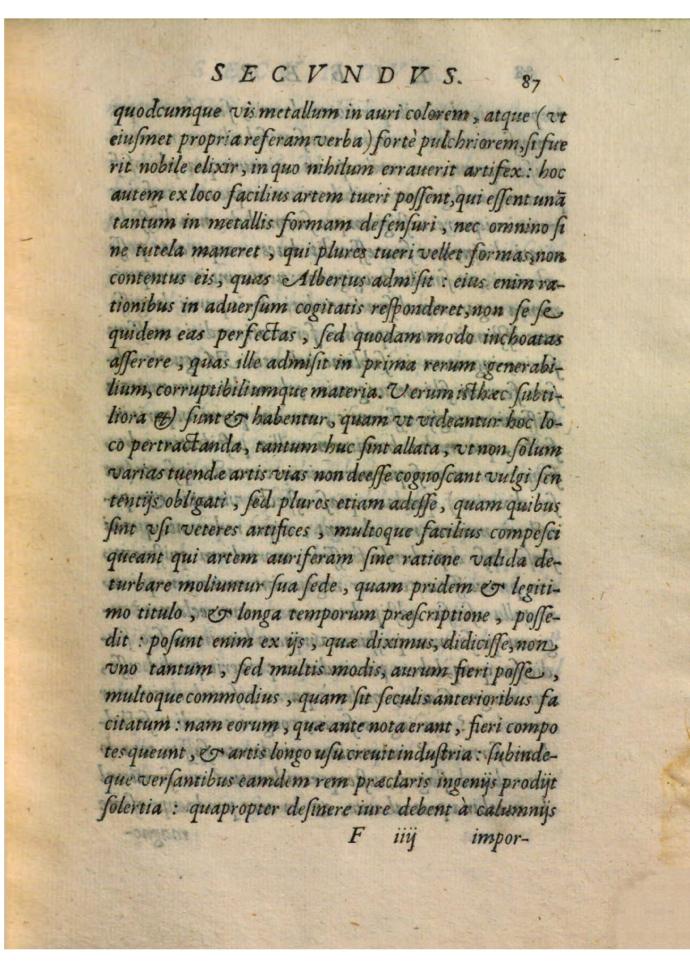 SECVNDVS. 87
quodcumque vis metallum in auri colorem, atque (vt
eiuſmet propria referam verba) fortè pulchriorem, ſi fue
rit nobile elixir, in quo nihilum errauerit artifex: hoc
autem ex loco facilius artem tueri poſſent, qui eſſent unã
tantum in metallis formam defenſuri, nec omnino ſi
ne tutela maneret, qui plures tueri vellet formas, non
contentus eis, quas Albertus admiſit: eius enim ra-
tionibus in aduerſum cogitatis reſponderet, non ſe ſe
quidem eas perfectas, ſed quodam modo inchoatas
aſſerere, quas ille admiſit in prima rerum generabi-
lium, corruptibiliumque materia. Verum iſthæc ſubti-
liora & ſunt & habentur, quam vt videantur hoc lo-
co pertractanda, tantum huc ſint allata, vt non ſolum
varias tuendæ artis vias non deeſſe cognoſcant vulgi ſen
tentijs obligati, ſed plures etiam adeſſe, quam quibus
ſint vſi veteres artifices, multoque facilius compeſci
queant qui artem auriferam ſine ratione valida de-
turbare moliuntur ſua ſede, quam pridem & legiti-
mo titulo, & longa temporum præſcriptione, poſſe-
dit: poſunt enim ex ijs, quæ diximus, didiciſſe, non
vno tantum, ſed multis modis, aurum fieri poſſe,
multoque commodius, quam ſit ſeculis anterioribus fa
citatum: nam eorum, quæ ante nota erant, fieri compo
tes queunt, & artis longo uſu creuit induſtria: ſubinde-
que verſantibus eamdem rem præclaris ingenijs prodijt
ſolertia: quapropter deſinere iure debent à calumnijs
F iiij impor-